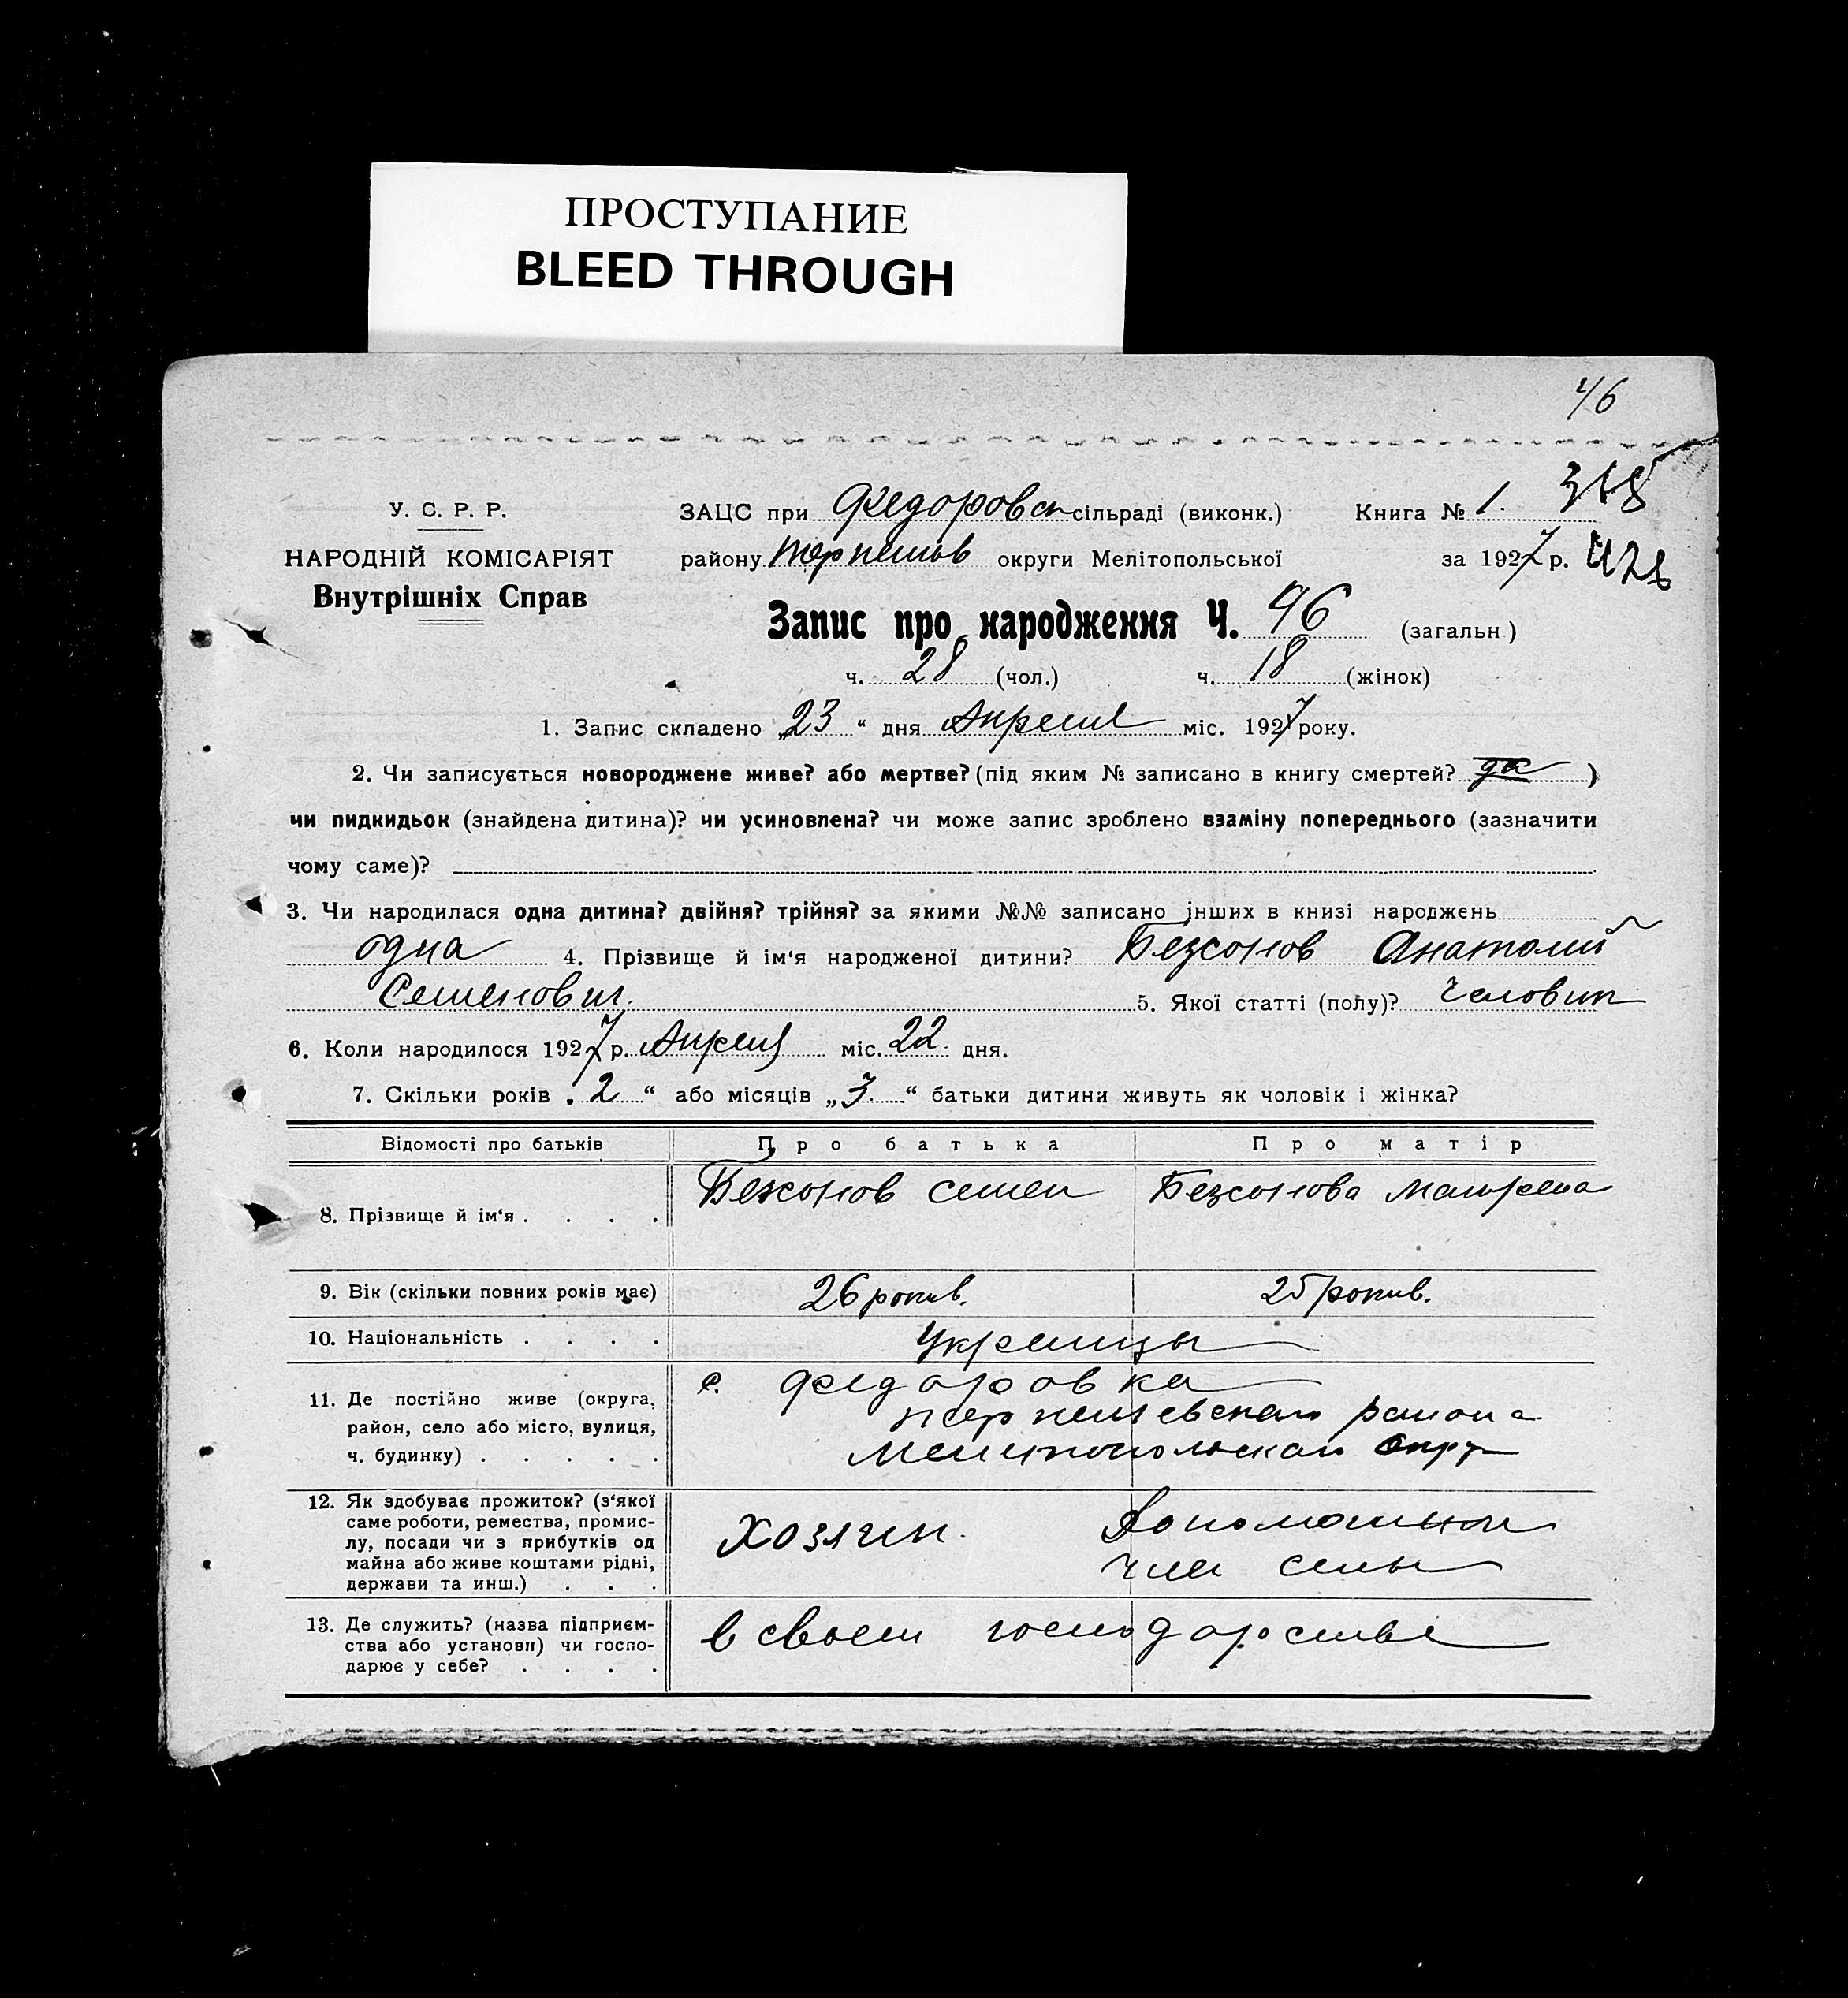 ПРОСТУПАНИЕ
BLEED THROUGH
46
У. С. Р. Р.
НАРОДНІЙ КОМІСАРІЯТ
Внутрішніх Справ
ЗАЦС при Федоровск сільраді (виконк.) Книга № 1.
району округи Мелітопольської за 1927 р.
Запис про народження Ч. 46 (загальн.)
ч. 28 (чол.) ч. 18 (жінок)
1. Запис складено „23“ дня Апреля міс. 1927 року.
2. Чи записується новороджене живе? або мертве? (під яким № записано в книгу смертей? да )
чи пидкидьок (знайдена дитина)? чи усиновлена? чи може запис зроблено взаміну попереднього (зазначити
чому саме)?
3. Чи народилася одна дитина? двійня? трійня? за якими №№ записано інших в книзі народжень
одна 4. Прізвище й ім‘я народженої дитини? Безсонов Анатолий
Семенович. 5. Якої статті (полу)? Человик
6. Коли народилося 1927 р. Апреля міс. 22 дня.
7. Скільки років „2“ або місяців „3“ батьки дитини живуть як чоловік і жінка?
Відомості про батьків Про батька Про матір
8. Прізвище й ім‘я . . . . Безсонов Семен Безсонова
9. Вік (скільки повних років має) 26 рокив. 25 рокив.
10. Національність . . . . Украинцы
11. Де постійно живе (округа,
район, село або місто, вулиця,
ч. будинку) . . . . .
с. Федоровка
района
Мелитопольскаго Окр
12. Як здобуває прожиток? (з‘якої
саме роботи, ремества, промис-
лу, посади чи з прибутків од
майна або живе коштами рідні,
держави та инш.) . . .
Хозяин.
член семьи
13. Де служить? (назва підприєм-
ства або установи) чи госпо-
дарює у себе? . . . .
в своем господарстве